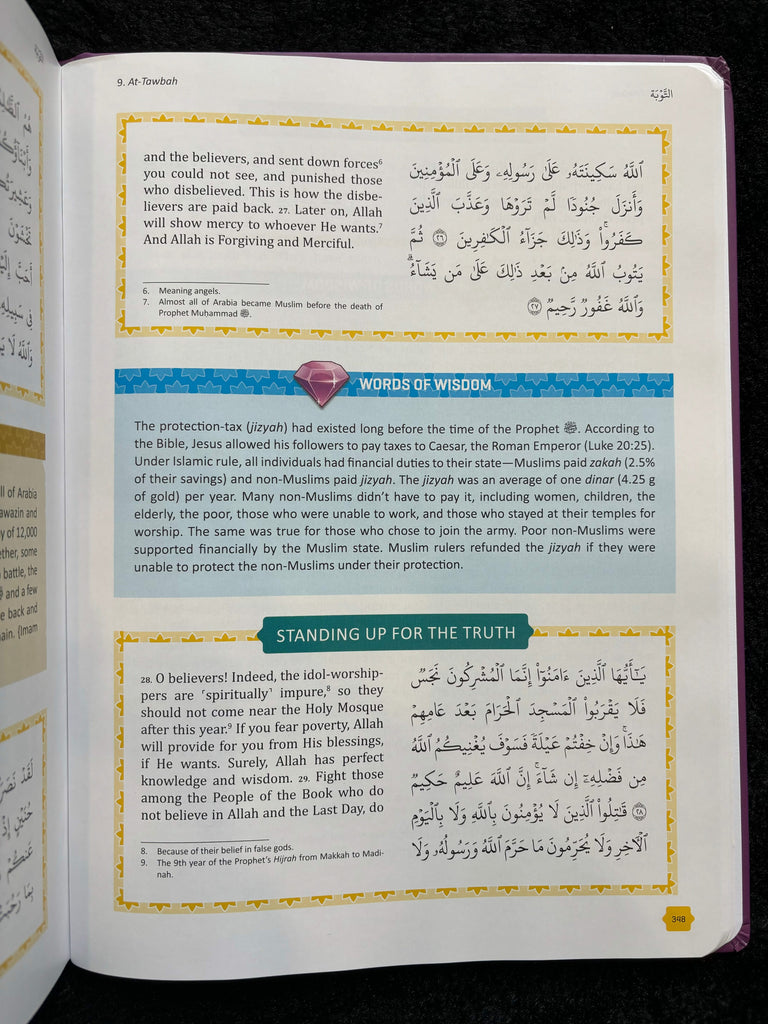 9. At-Tawbah
التَّوْبَة
and the believers, and sent down forces⁶
you could not see, and punished those
who disbelieved. This is how the disbe-
lievers are paid back. 27. Later on, Allah
will show mercy to whoever He wants.⁷
And Allah is Forgiving and Merciful.
6. Meaning angels.
7. Almost all of Arabia became Muslim before the death of
Prophet Muḥammad ﷺ.
ٱللَّهُ سَكِينَتَهُۥ عَلَىٰ رَسُولِهِۦ وَعَلَى ٱلْمُؤْمِنِينَ
وَأَنزَلَ جُنُودًا لَّمْ تَرَوْهَا وَعَذَّبَ ٱلَّذِينَ
كَفَرُوا۟ ۚ وَذَٰلِكَ جَزَآءُ ٱلْكَـٰفِرِينَ ٢٦ ثُمَّ
يَتُوبُ ٱللَّهُ مِنۢ بَعْدِ ذَٰلِكَ عَلَىٰ مَن يَشَآءُ ۗ
وَٱللَّهُ غَفُورٌ رَّحِيمٌ ٢٧
WORDS OF WISDOM
The protection-tax (jizyah) had existed long before the time of the Prophet ﷺ. According to
the Bible, Jesus allowed his followers to pay taxes to Caesar, the Roman Emperor (Luke 20:25).
Under Islamic rule, all individuals had financial duties to their state—Muslims paid zakah (2.5%
of their savings) and non-Muslims paid jizyah. The jizyah was an average of one dinar (4.25 g
of gold) per year. Many non-Muslims didn't have to pay it, including women, children, the
elderly, the poor, those who were unable to work, and those who stayed at their temples for
worship. The same was true for those who chose to join the army. Poor non-Muslims were
supported financially by the Muslim state. Muslim rulers refunded the jizyah if they were
unable to protect the non-Muslims under their protection.
STANDING UP FOR THE TRUTH
28. O believers! Indeed, the idol-worship-
pers are ˹spiritually˺ impure,⁸ so they
should not come near the Holy Mosque
after this year.⁹ If you fear poverty, Allah
will provide for you from His blessings,
if He wants. Surely, Allah has perfect
knowledge and wisdom. 29. Fight those
among the People of the Book who do
not believe in Allah and the Last Day, do
8. Because of their belief in false gods.
9. The 9th year of the Prophet's Hijrah from Makkah to Madi-
nah.
يَـٰٓأَيُّهَا ٱلَّذِينَ ءَامَنُوٓا۟ إِنَّمَا ٱلْمُشْرِكُونَ نَجَسٌ
فَلَا يَقْرَبُوا۟ ٱلْمَسْجِدَ ٱلْحَرَامَ بَعْدَ عَامِهِمْ
هَـٰذَا ۚ وَإِنْ خِفْتُمْ عَيْلَةً فَسَوْفَ يُغْنِيكُمُ ٱللَّهُ
مِن فَضْلِهِۦٓ إِن شَآءَ ۚ إِنَّ ٱللَّهَ عَلِيمٌ حَكِيمٌ
٢٨ قَـٰتِلُوا۟ ٱلَّذِينَ لَا يُؤْمِنُونَ بِٱللَّهِ وَلَا بِٱلْيَوْمِ
ٱلْـَٔاخِرِ وَلَا يُحَرِّمُونَ مَا حَرَّمَ ٱللَّهُ وَرَسُولُهُۥ وَلَا
348
ll of Arabia
awazin and
y of 12,000
ether, some
battle, the
ﷺ and a few
e back and
ain. {Imam